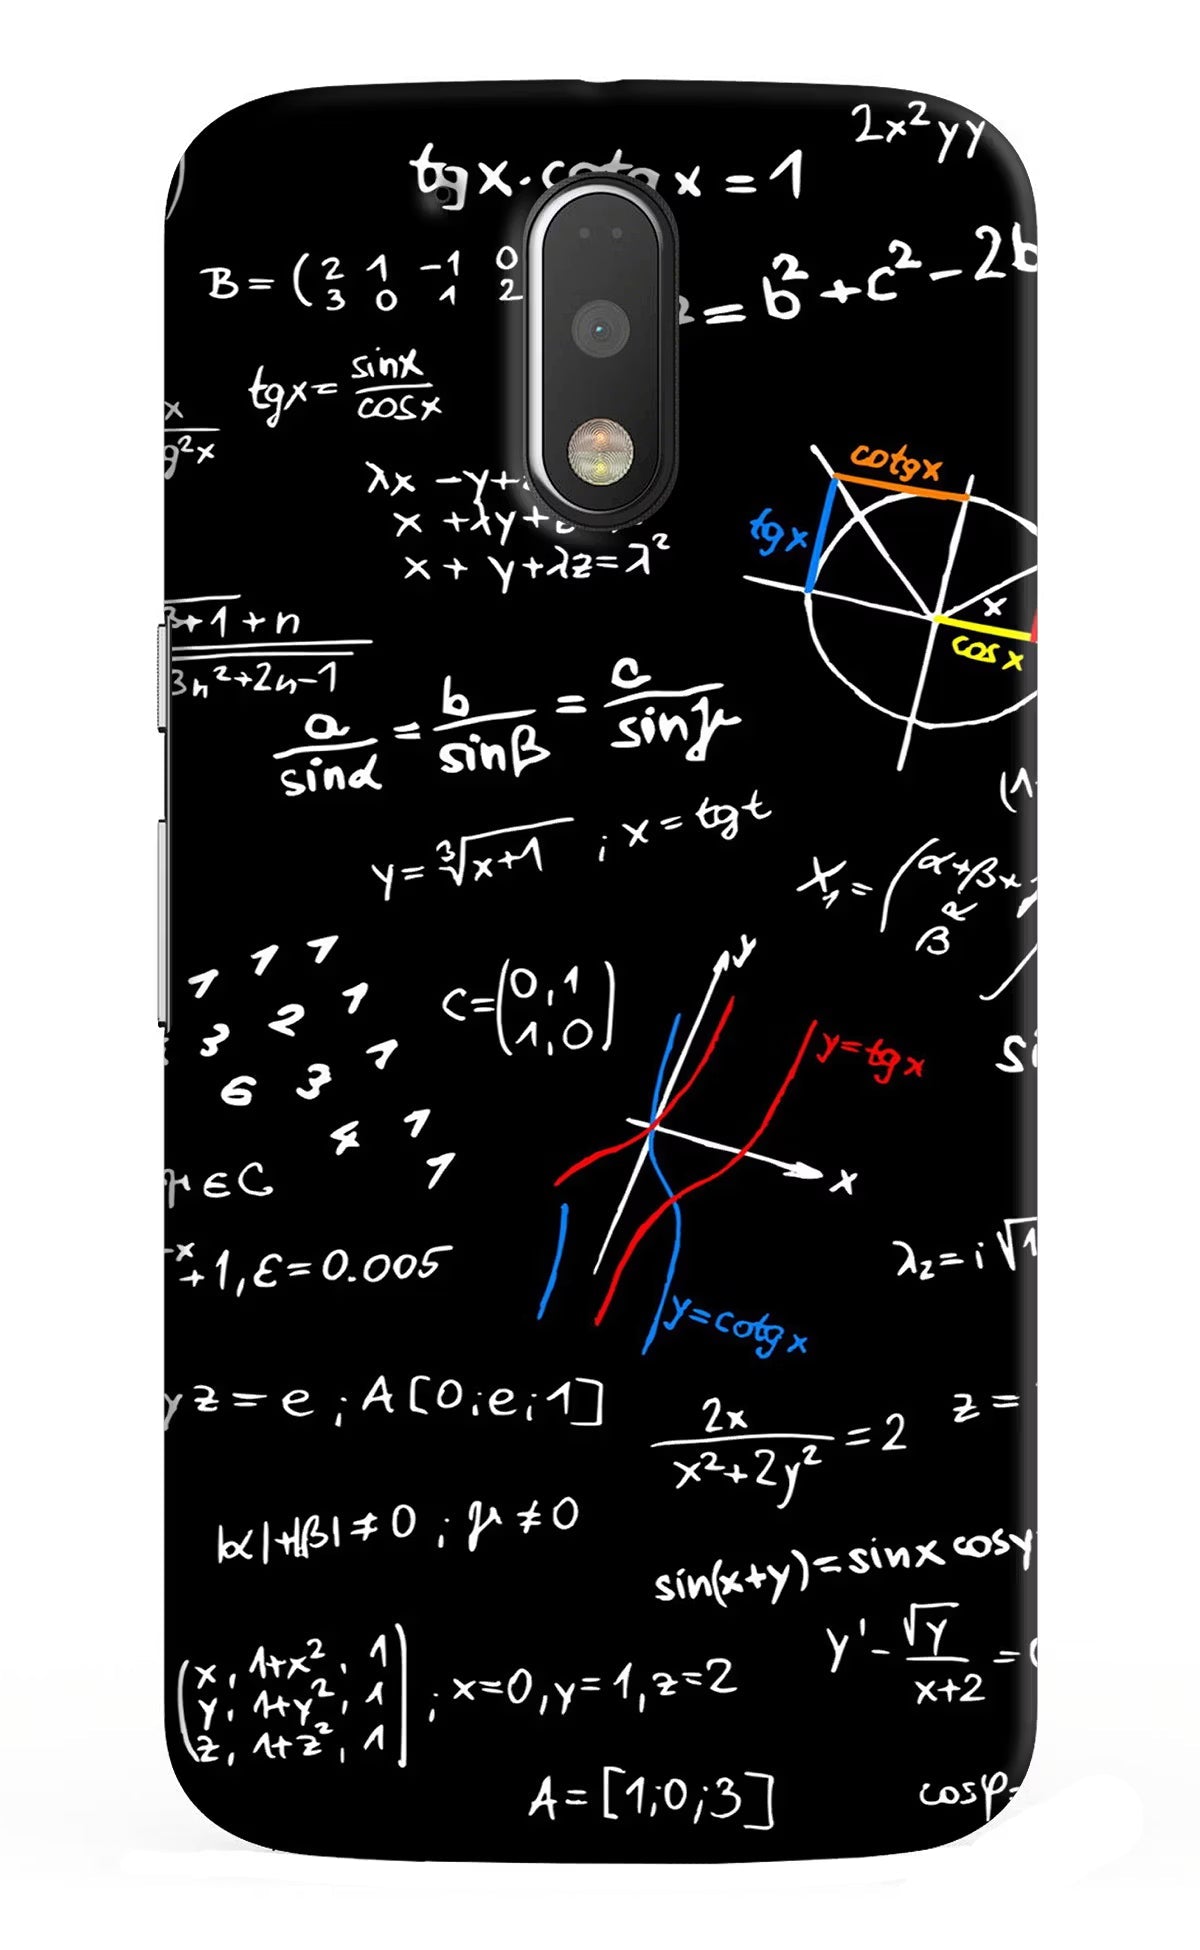 2x²yy
tgx·cotgx = 1
B = (2 1 -1 0
3 0 1 2
² = b² + c² - 2b
tgx = sinx
cosx
x
g²x
cotgx
λx - y +
x + λy +
x + y + λz = λ²
tgx
x
cosx
3+1 + n
3n²+2n-1
a/sinα = b/sinβ = c/sinμ
y = ∛x+1 ; x = tgt
(1-
X₁ = (α+βx
β
1 1 1
3 2 1
6 3 1
4 1
1
C = (0,1
1,0)
y
y=tgx
si
x
μ∈C
-x
+1, ε = 0.005
λ₂ = i√1
y=cotgx
yz = e ; A[0;e;1]
2x
x²+2y² = 2
z =
|α|+|β| ≠ 0 ; μ ≠ 0
sin(x+y) = sinx cosy
y' - √y
x+2 =
(x, 1+x², 1
y, 1+y², 1
z, 1+z², 1) ; x=0, y=1, z=2
A = [1;0;3]
cosφ=